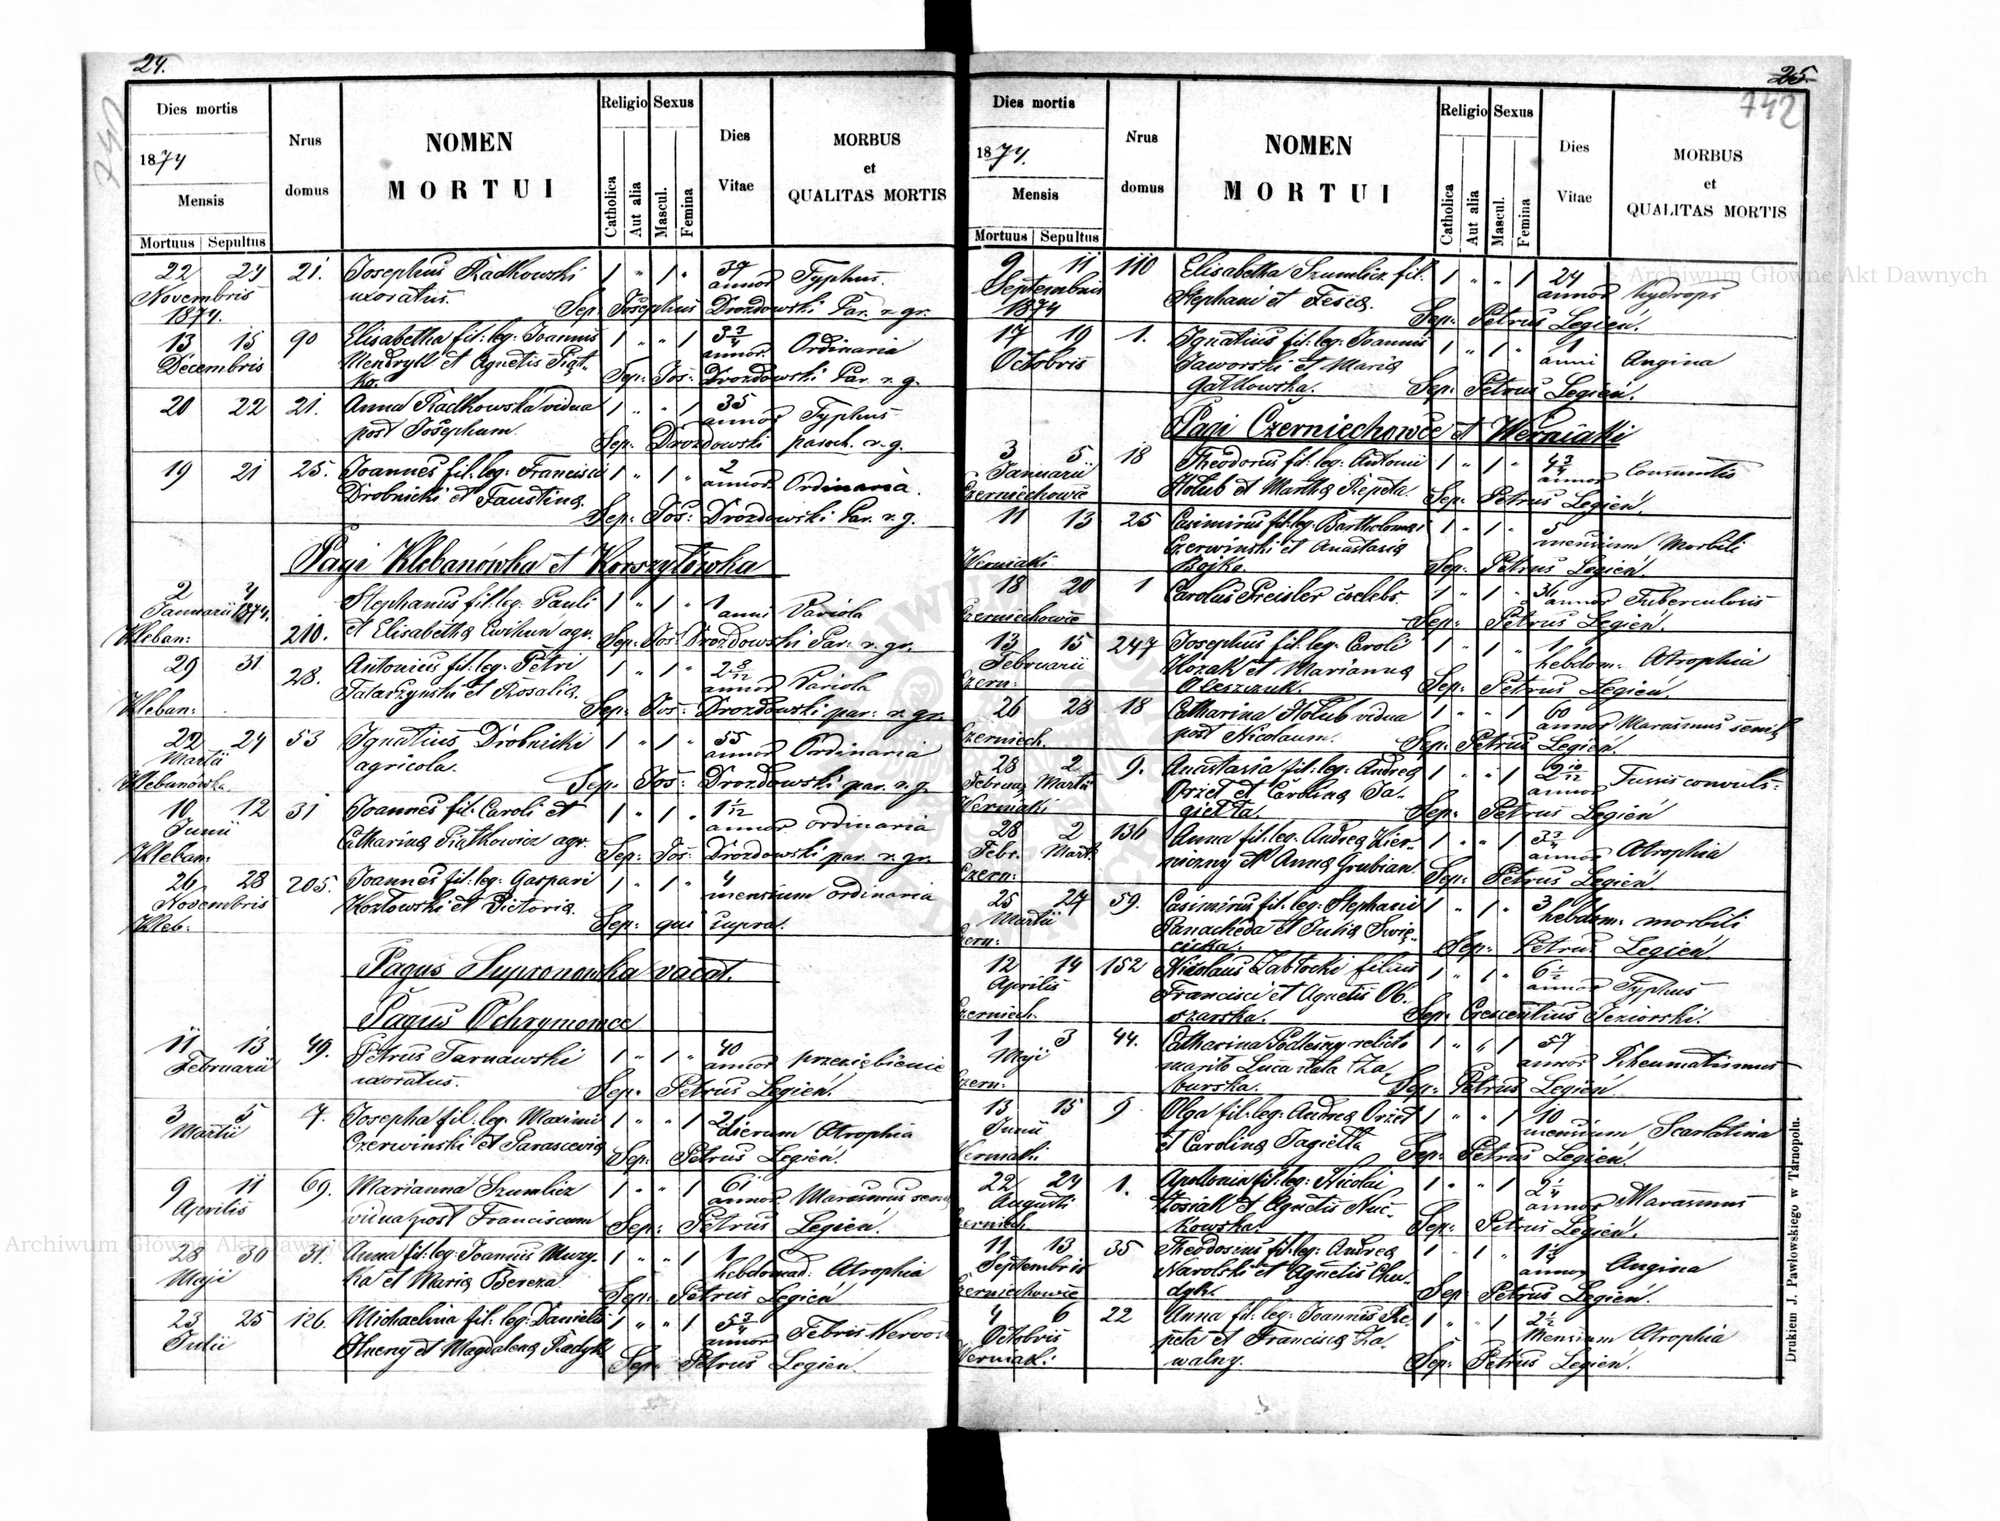 24.
Dies mortis
1874
Mensis
Mortuus Sepultus
Nrus domus
NOMEN
MORTUI
Religio
Catholica
Aut alia
Sexus
Mascul.
Femina
Dies
Vitae
MORBUS
et
QUALITAS MORTIS
22 24 21. Josephus Radkowski 1 " 1 " 37 Typhus.
Novembris uxoratus. annor
1874. Sep. Josephus Drozdowski Par. r. gr.
13 15 90 Elisabetha fil: leg: Joannis 1 " " 1 3 3/4 Ordinaria
Decembris Mendryk et Agnetis Piąt- annor.
ko. Sep: Jos: Drozdowski Par. r. g.
20 22 21. Anna Radkowska vidua 1 " " 1 35 Typhus
post Josephum. annor
Sep: Drozdowski paroch. r. g.
19 21 25. Joannes fil: leg: Francisci 1 " 1 " 2 Ordinaria.
Drobnicki et Faustina. annor.
Sep: Jos: Drozdowski Par. r. g.
Pagi Klebanówka et Korszyłówka
2 4 Stephanus fil: leg: Pauli 1 " 1 " 1 Variola
Januarii 1874. anni
Kleban: 210. et Elisabetha agr. Sep: Jos: Drozdowski Par: r. gr.
29 31 28. Antonius fil: leg: Petri 1 " 1 " 2 8/12 Variola
Tatarzynski et Rosalia. annor
Kleban: Sep: Jos: Drozdowski par: r. gr.
22 24 53 Ignatius Drobnicki 1 " 1 " 55 Ordinaria
Martii agricola. annor
Klebanówka Sep: Jos: Drozdowski par. r. g.
10 12 31 Joannes fil: Caroli et 1 " 1 " 1 1/2 ordinaria
Junii Catharina Piątkowicz agr. annor.
Kleban: Sep: Jos: Drozdowski par. r. gr.
26 28 205. Joannes fil: leg: Gaspari 1 " 1 " 4 ordinaria
Novembris Kozłowski et Victoria. mensium
Kleb: Sep: qui supra.
Pagus Supronowka vacat.
Pagus Ochrymowce
11 13 49. Petrus Tarnawski 1 " 1 " 40 przeziębienie
Februarii uxoratus. annor
Sep: Petrus Legień.
3 5 7. Josepha fil: leg: Maximi 1 " " 1 2 Atrophia
Martii Czerwinski et Parascevia dierum
Sep: Petrus Legień.
9 11 69. Marianna Szumlicz 1 " " 1 61 Marasmus senil
Aprilis vidua post Franciscum annor.
Sep: Petrus Legień.
28 30 31. Anna fil: leg: Joannis Muzy- 1 " " 1 1 Atrophia
Maji ka et Maria Bereza hebdomad:
Sep: Petrus Legień
23 25 126. Michaelina fil: leg: Danielis 1 " " 1 5 3/4 Febris Nervosa
Julii et Magdalena Radyk annor
Sep: Petrus Legień.
25.
742
Dies mortis
1874.
Mensis
Mortuus Sepultus
Nrus domus
NOMEN
MORTUI
Religio
Catholica
Aut alia
Sexus
Mascul.
Femina
Dies
Vitae
MORBUS
et
QUALITAS MORTIS
9 11 110 Elisabetha Szumlicz fil. 1 " " 1 24 Hydrops
Septembris Stephani et Tesia. annor
1874 Sep: Petrus Legień.
17 19 1. Ignatius fil: leg: Joannis 1 " 1 " 1 Angina
Octobris Jaworski et Maria anni
Gałkowska. Sep: Petrus Legień.
Pagi Czerniechowce et Werniaki
3 5 18 Theodorus fil: leg: Antonii 1 " 1 " 4 3/4
Januarii Hołub et Martha Repeta. annor
Czerniechowce Sep: Petrus Legień.
11 13 25 Casimirus fil: leg: Bartholomaei 1 " 1 " 5 Morbili
Czerwinski et Anastasia mensium
Werniaki Bojko. Sep: Petrus Legień.
18 20 1 Carolus Preisler coelebs. 1 " 1 " 36 Tuberculosis
annor
Czerniechowce Sep: Petrus Legień.
13 15 247 Josephus fil: leg: Caroli 1 " 1 " 1 Atrophia
Februarii Kozak et Marianna hebdom:
Czern: Oleszczuk. Sep: Petrus Legień.
26 28 18 Catharina Hołub vidua 1 " " 1 60 Marasmus senil
post Nicolaum. annor
Czerniech. Sep: Petrus Legień.
28 2 9. Anastasia fil: leg: Andrea 1 " " 1 2 10/12 Tussis convuls-
Februa Martii Orzeł et Carolina Ja- annor
Werniaki giełła. Sep: Petrus Legień
28 2 136 Anna fil: leg: Andrea 1 " " 1 3 3/4 Atrophia
Febr. Mart. et Anna Grubian. annor
Czern: Sep: Petrus Legień
25 27 59. Casimirus fil: leg: Stephani 1 " 1 " 3 morbili
Martii Panacheda et Julia Swię- hebdom:
Czern: cicka. Sep: Petrus Legień
12 14 152 Nicolaus Zabłocki filius 1 " 1 " 6 1/2 Typhus
Aprilis Francisci et Agnetis Ob- annor
Czerniech. szarska. Sep: Crescentius Jeziorski.
1 3 44. Catharina Podleśny relicta 1 " " 1 57 Rheumatismus
Maji marito Luca nata Za- annor
Czern: burska. Sep: Petrus Legień
13 15 9 Olga fil: leg: Andrea Orzeł 1 " " 1 10 Scarlatina
Junii et Carolina Jagiełła mensium
Werniaki Sep: Petrus Legień.
22 24 1. Apollonia fil: leg: Nicolai 1 " " 1 2 1/4 Marasmus
Augusti Łosiak et Agnetis annor
Czerniech kowska. Sep: Petrus Legień.
11 13 35 Theodosius fil: leg: Andrea 1 " 1 " 1 Angina
Septembris Narolski et Agnetis Chu- annor
Czerniechowce dyk. Sep: Petrus Legień.
4 6 22 Anna fil: leg: Joannis Re- 1 " " 1 2 1/2 Atrophia
Octobris peta et Francisca Za- Mensium
Werniaki: walny. Sep: Petrus Legień.
Drukiem J. Pawłowskiego w Tarnopolu.
Archiwum Główne Akt Dawnych
Archiwum Główne Akt Dawnych